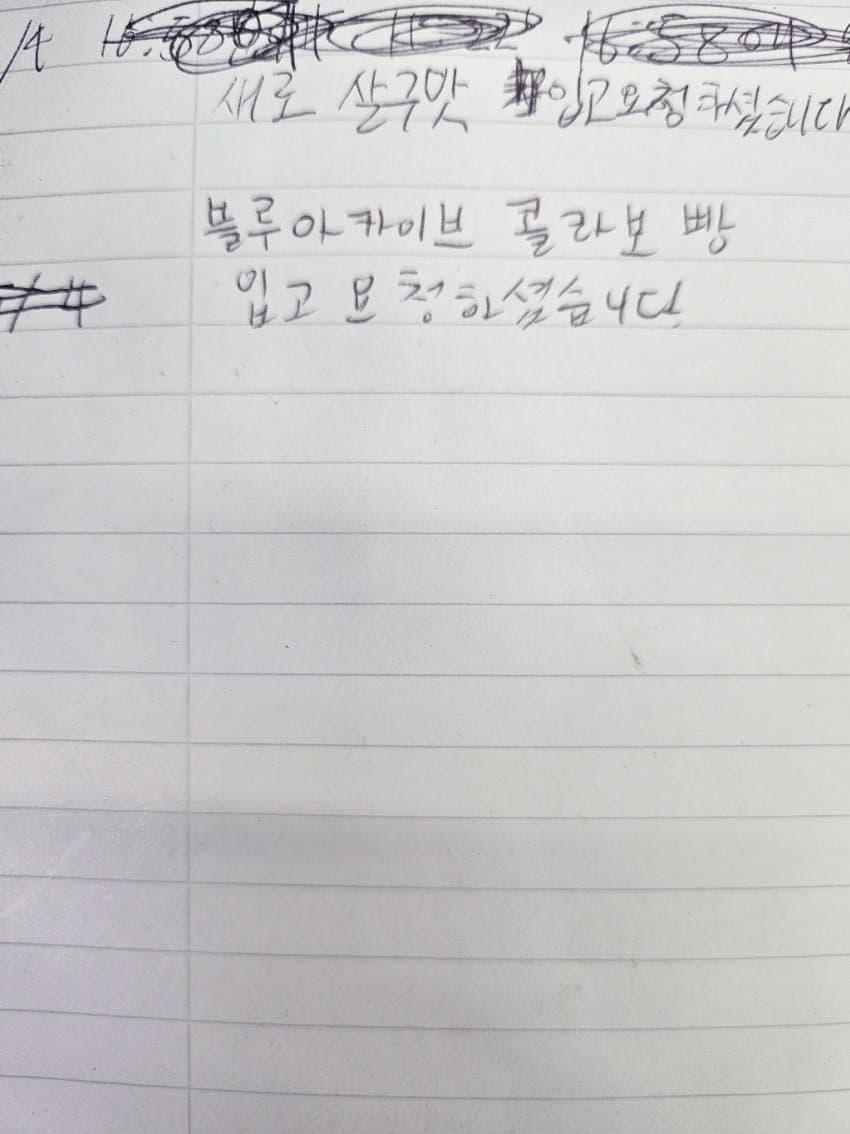 새로 살구맛 입고요청하셨습니다
블루아카이브 콜라보 빵
입고 요청하셨습니다